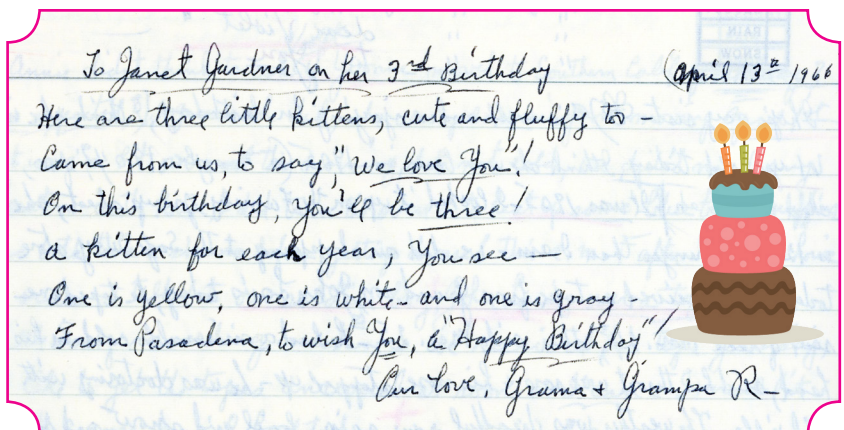 To Janet Gardner on her 3rd Birthday (April 13th 1966
Here are three little kittens, cute and fluffy too -
Came from us, to say "We love You"!
On this birthday, you'll be three!
a kitten for each year, You see —
One is yellow, one is white - and one is gray -
From Pasadena, to wish You, a "Happy Birthday"!
Our love, Grama + Grampa R-